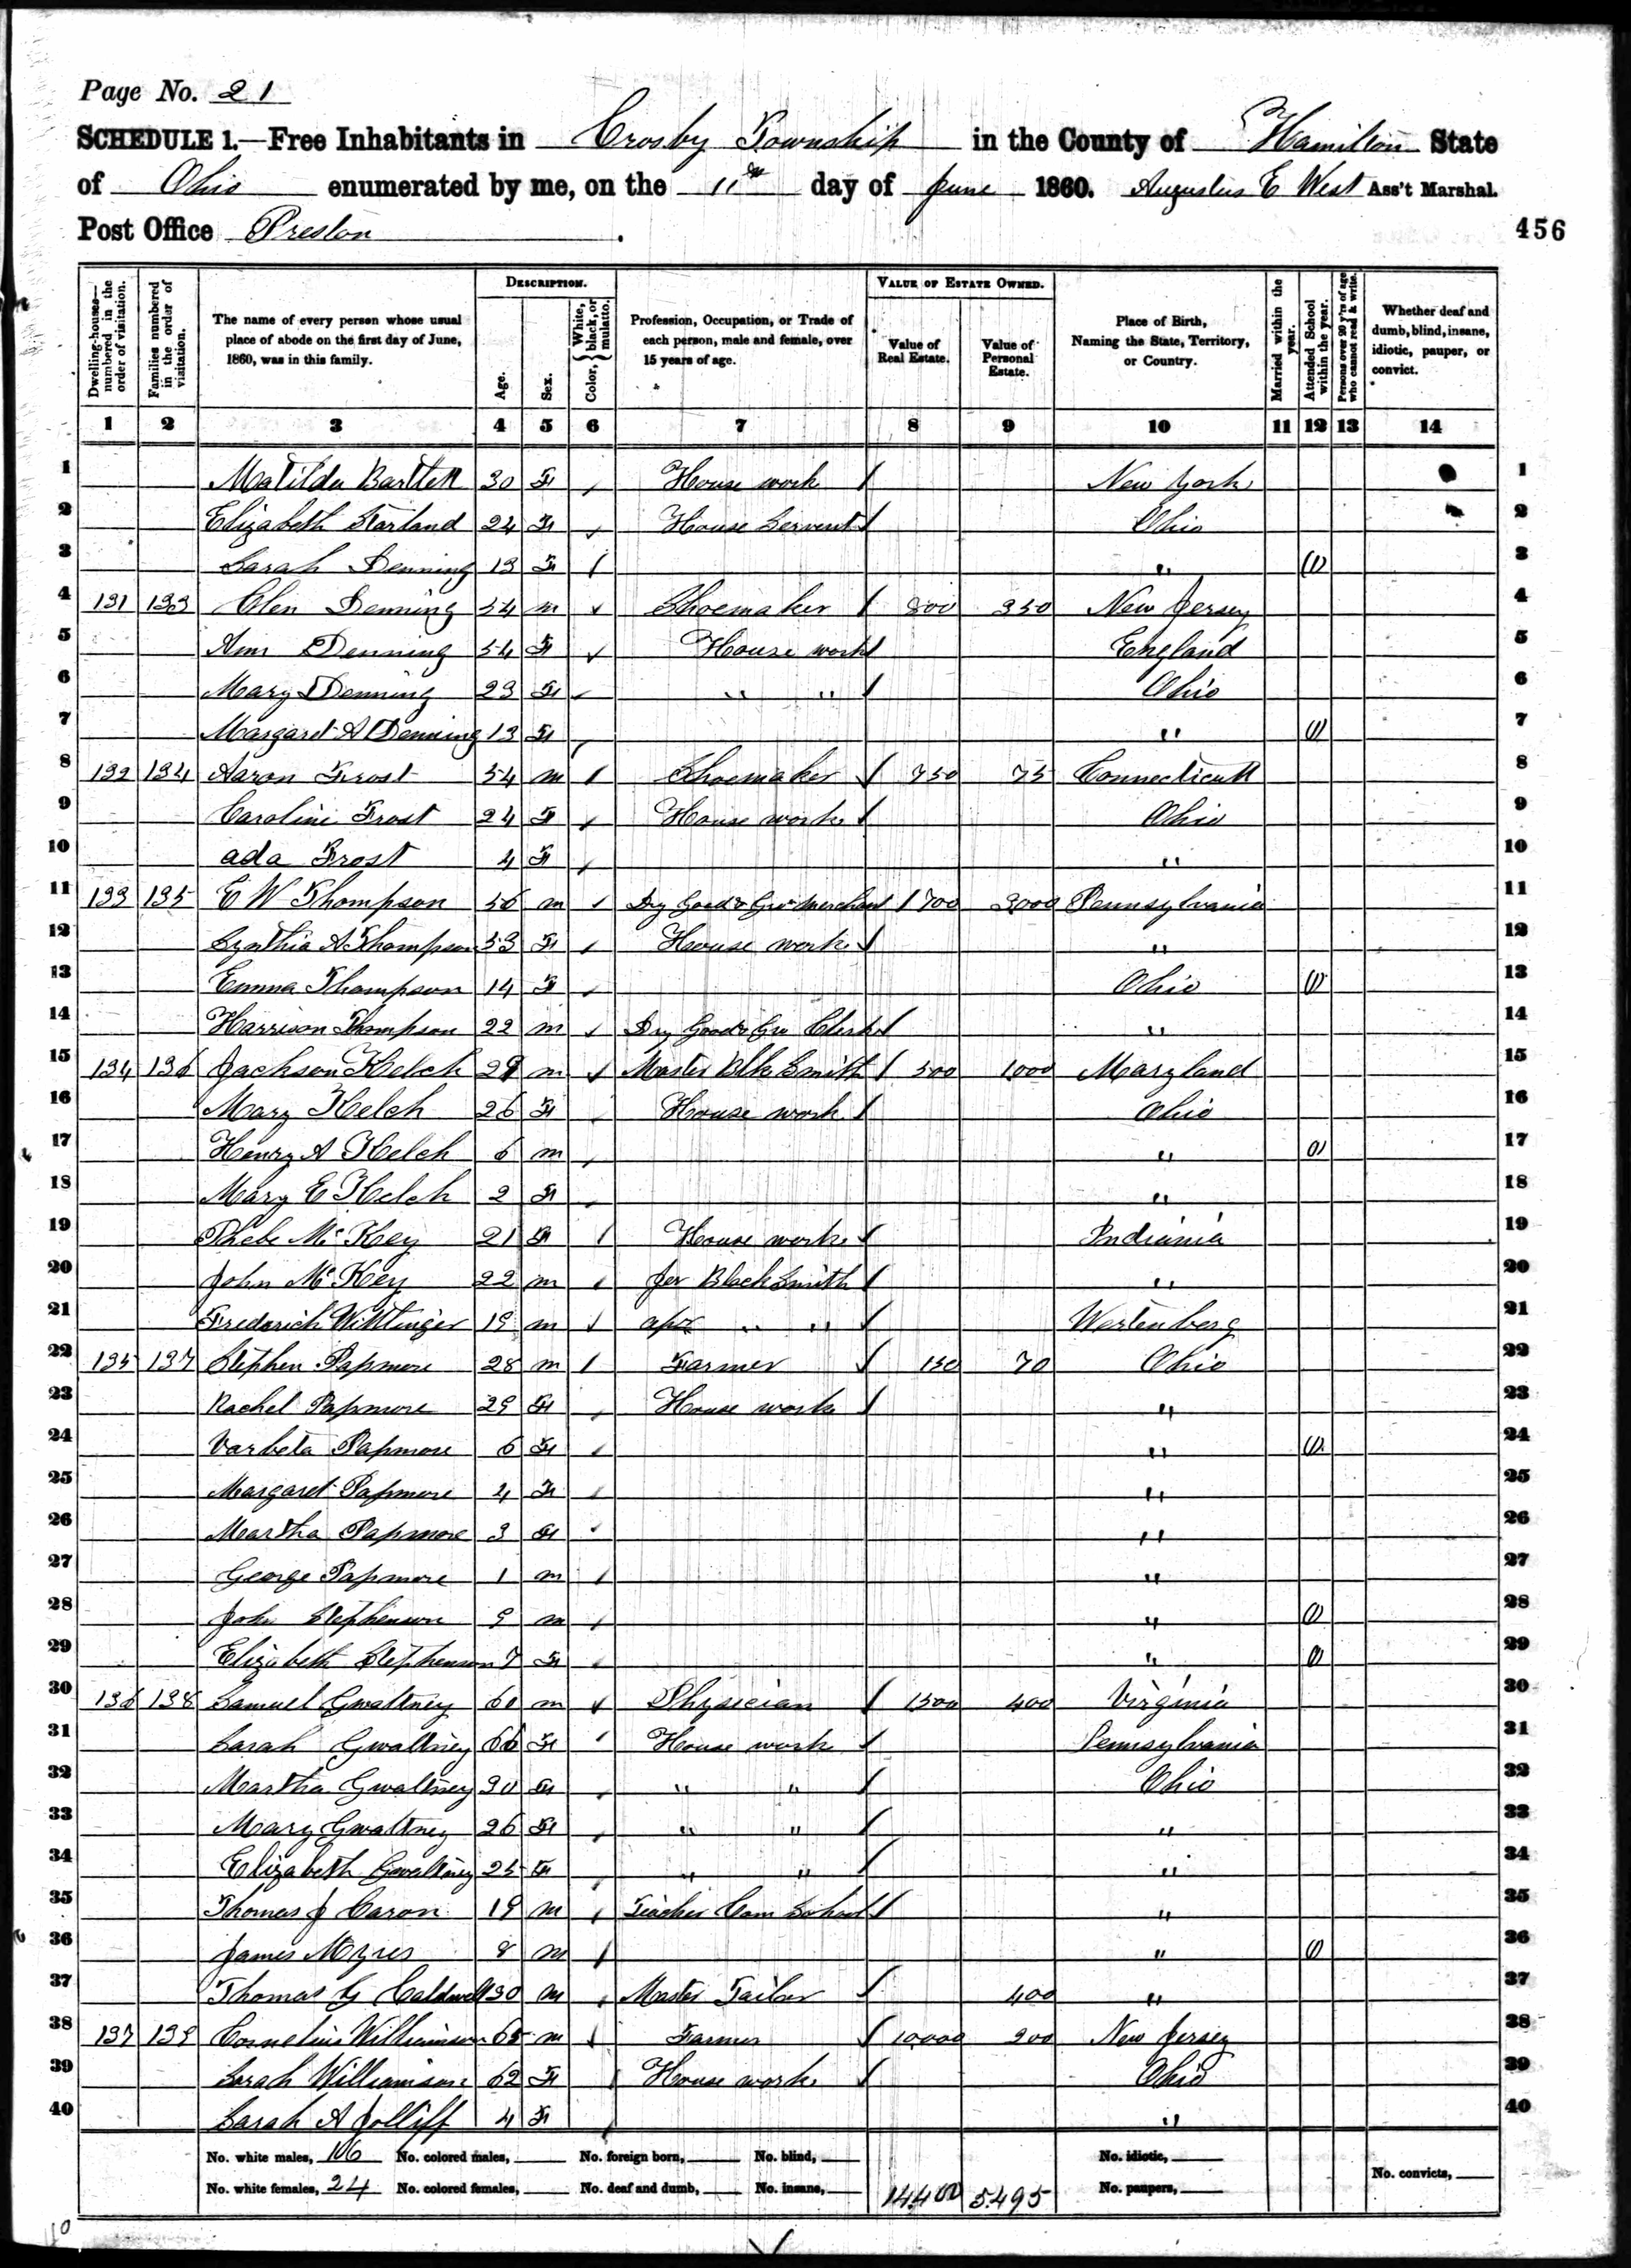 Page No. 21
SCHEDULE 1.—Free Inhabitants in Crosby Township in the County of Hamilton State
of Ohio enumerated by me, on the 11th day of June 1860. Augustus E West Ass't Marshal.
Post Office Preston.
456
DESCRIPTION. VALUE OF ESTATE OWNED.
Dwelling-houses—numbered in the order of visitation. Families numbered in the order of visitation. The name of every person whose usual place of abode on the first day of June, 1860, was in this family. Age. Sex. Color, {White, black, or mulatto. Profession, Occupation, or Trade of each person, male and female, over 15 years of age. Value of Real Estate. Value of Personal Estate. Place of Birth, Naming the State, Territory, or Country. Married within the year. Attended School within the year. Persons over 20 y'rs of age who cannot read & write. Whether deaf and dumb, blind, insane, idiotic, pauper, or convict.
1 2 3 4 5 6 7 8 9 10 11 12 13 14
1 Matilda Bartlett 30 F House work / New York 1
2 Elizabeth Starland 24 F House Servent / Ohio 2
3 Sarah Denning 13 F / " (1) 3
4 131 133 Clen Denning 54 m Shoemaker / 800 350 New Jersey 4
5 Ann Denning 54 F House work / England 5
6 Mary Denning 23 F " " / Ohio 6
7 Margaret A Denning 13 F " (1) 7
8 132 134 Aaron Frost 54 m / Shoemaker / 750 75 Connecticutt 8
9 Caroline Frost 24 F House work / Ohio 9
10 ada Frost 4 F " 10
11 133 135 E W Thompson 56 m Dry Good & Gro Merchant / 700 3000 Pennsylvania 11
12 Cynthia A Thompson 53 F House work / " 12
13 Emma Thompson 14 F Ohio (1) 13
14 Harrison Thompson 22 m Dry Good & Gro Clerk / " 14
15 134 136 Jackson Kelch 29 m Master Blk Smith / 500 1000 Maryland 15
16 Mary Kelch 26 F House work / Ohio 16
17 Henry A Kelch 6 m " (1) 17
18 Mary E Kelch 2 F " 18
19 Phebe McKey 21 F / House work / Indiania 19
20 John McKey 22 m Jor Black Smith / " 20
21 Frederich Wittlinger 19 m apr " " / Wertenberg 21
22 135 137 Stephen Papmore 28 m / Farmer / 150 70 Ohio 22
23 Rachel Papmore 29 F House work / " 23
24 Varbeta Papmore 6 F " (1) 24
25 Margaret Papmore 4 F " 25
26 Martha Papmore 3 F " 26
27 George Papmore 1 m " 27
28 John Stephenson 9 m " (1) 28
29 Elizabeth Stephenson 7 F " (1) 29
30 136 138 Samuel Gwaltney 60 m Physician / 1500 400 Virginia 30
31 Sarah Gwaltney 66 F House work / Pennsylvania 31
32 Martha Gwaltney 30 F " " / Ohio 32
33 Mary Gwaltney 26 F " " / " 33
34 Elizabeth Gwaltney 25 F " " / " 34
35 Thomas J Caron 19 m Teacher Com School / " 35
36 James Myres 8 m / " (1) 36
37 Thomas G Caldwell 30 m Master Tailor / 400 " 37
38 137 139 Cornelius Williamson 65 m Farmer / 10000 200 New Jersey 38
39 Sarah Williamson 62 F House work / Ohio 39
40 Sarah A Jolliff 4 F " 40
No. white males, 16 No. colored males, No. foreign born, No. blind, No. idiotic,
No. white females, 24 No. colored females, No. deaf and dumb, No. insane, 14400 5495 No. paupers, No. convicts,